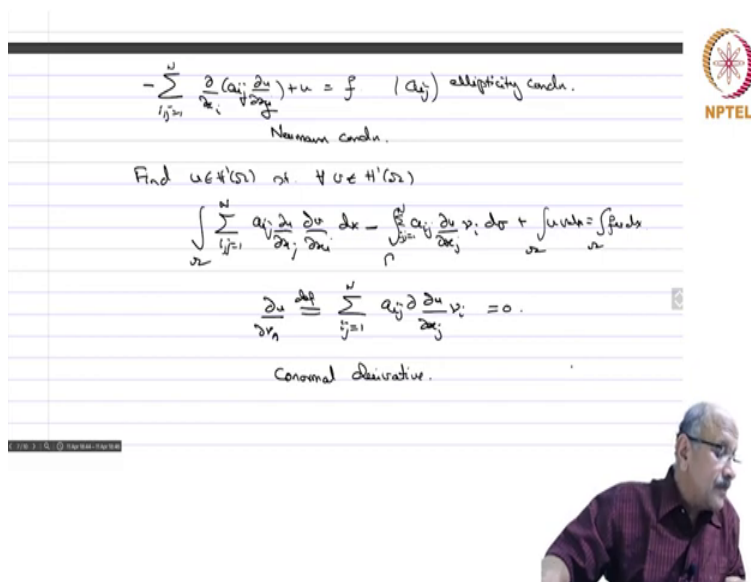 -∑_{i,j=1}^{N} ∂/∂x_i (a_ij ∂u/∂x_j) + u = f. (a_ij) ellipticity condn.
NPTEL
Neumann condn.
Find u ∈ H'(Ω) st. ∀ v ∈ H'(Ω)
∫_Ω ∑_{i,j=1}^{N} a_ij ∂u/∂x_j ∂v/∂x_i dx - ∫_Γ ∑_{i,j=1}^{N} a_ij ∂u/∂x_j ν_i dσ + ∫_Ω u v dx = ∫_Ω f v dx
∂u/∂ν_A def= ∑_{i,j=1}^{N} a_ij ∂ ∂u/∂x_j ν_i = 0.
Conormal derivative.